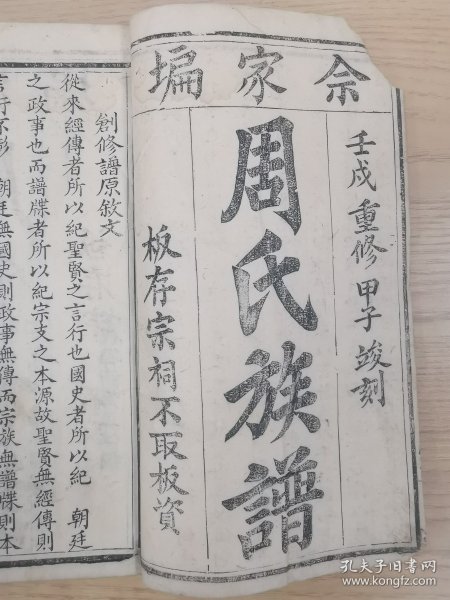 佘家塥
壬戌重修甲子竣刻
周氏族譜
板存宗祠不取板資
創修譜原敘文
從來經傳者所以紀聖賢之言行也國史者所以紀　朝廷
之政事也而譜牒者所以紀宗支之本源故聖賢無經傳則
言行不彰　朝廷無國史則政事無傳而宗族無譜牒則本
孔夫子旧书网
www.kongfz.com